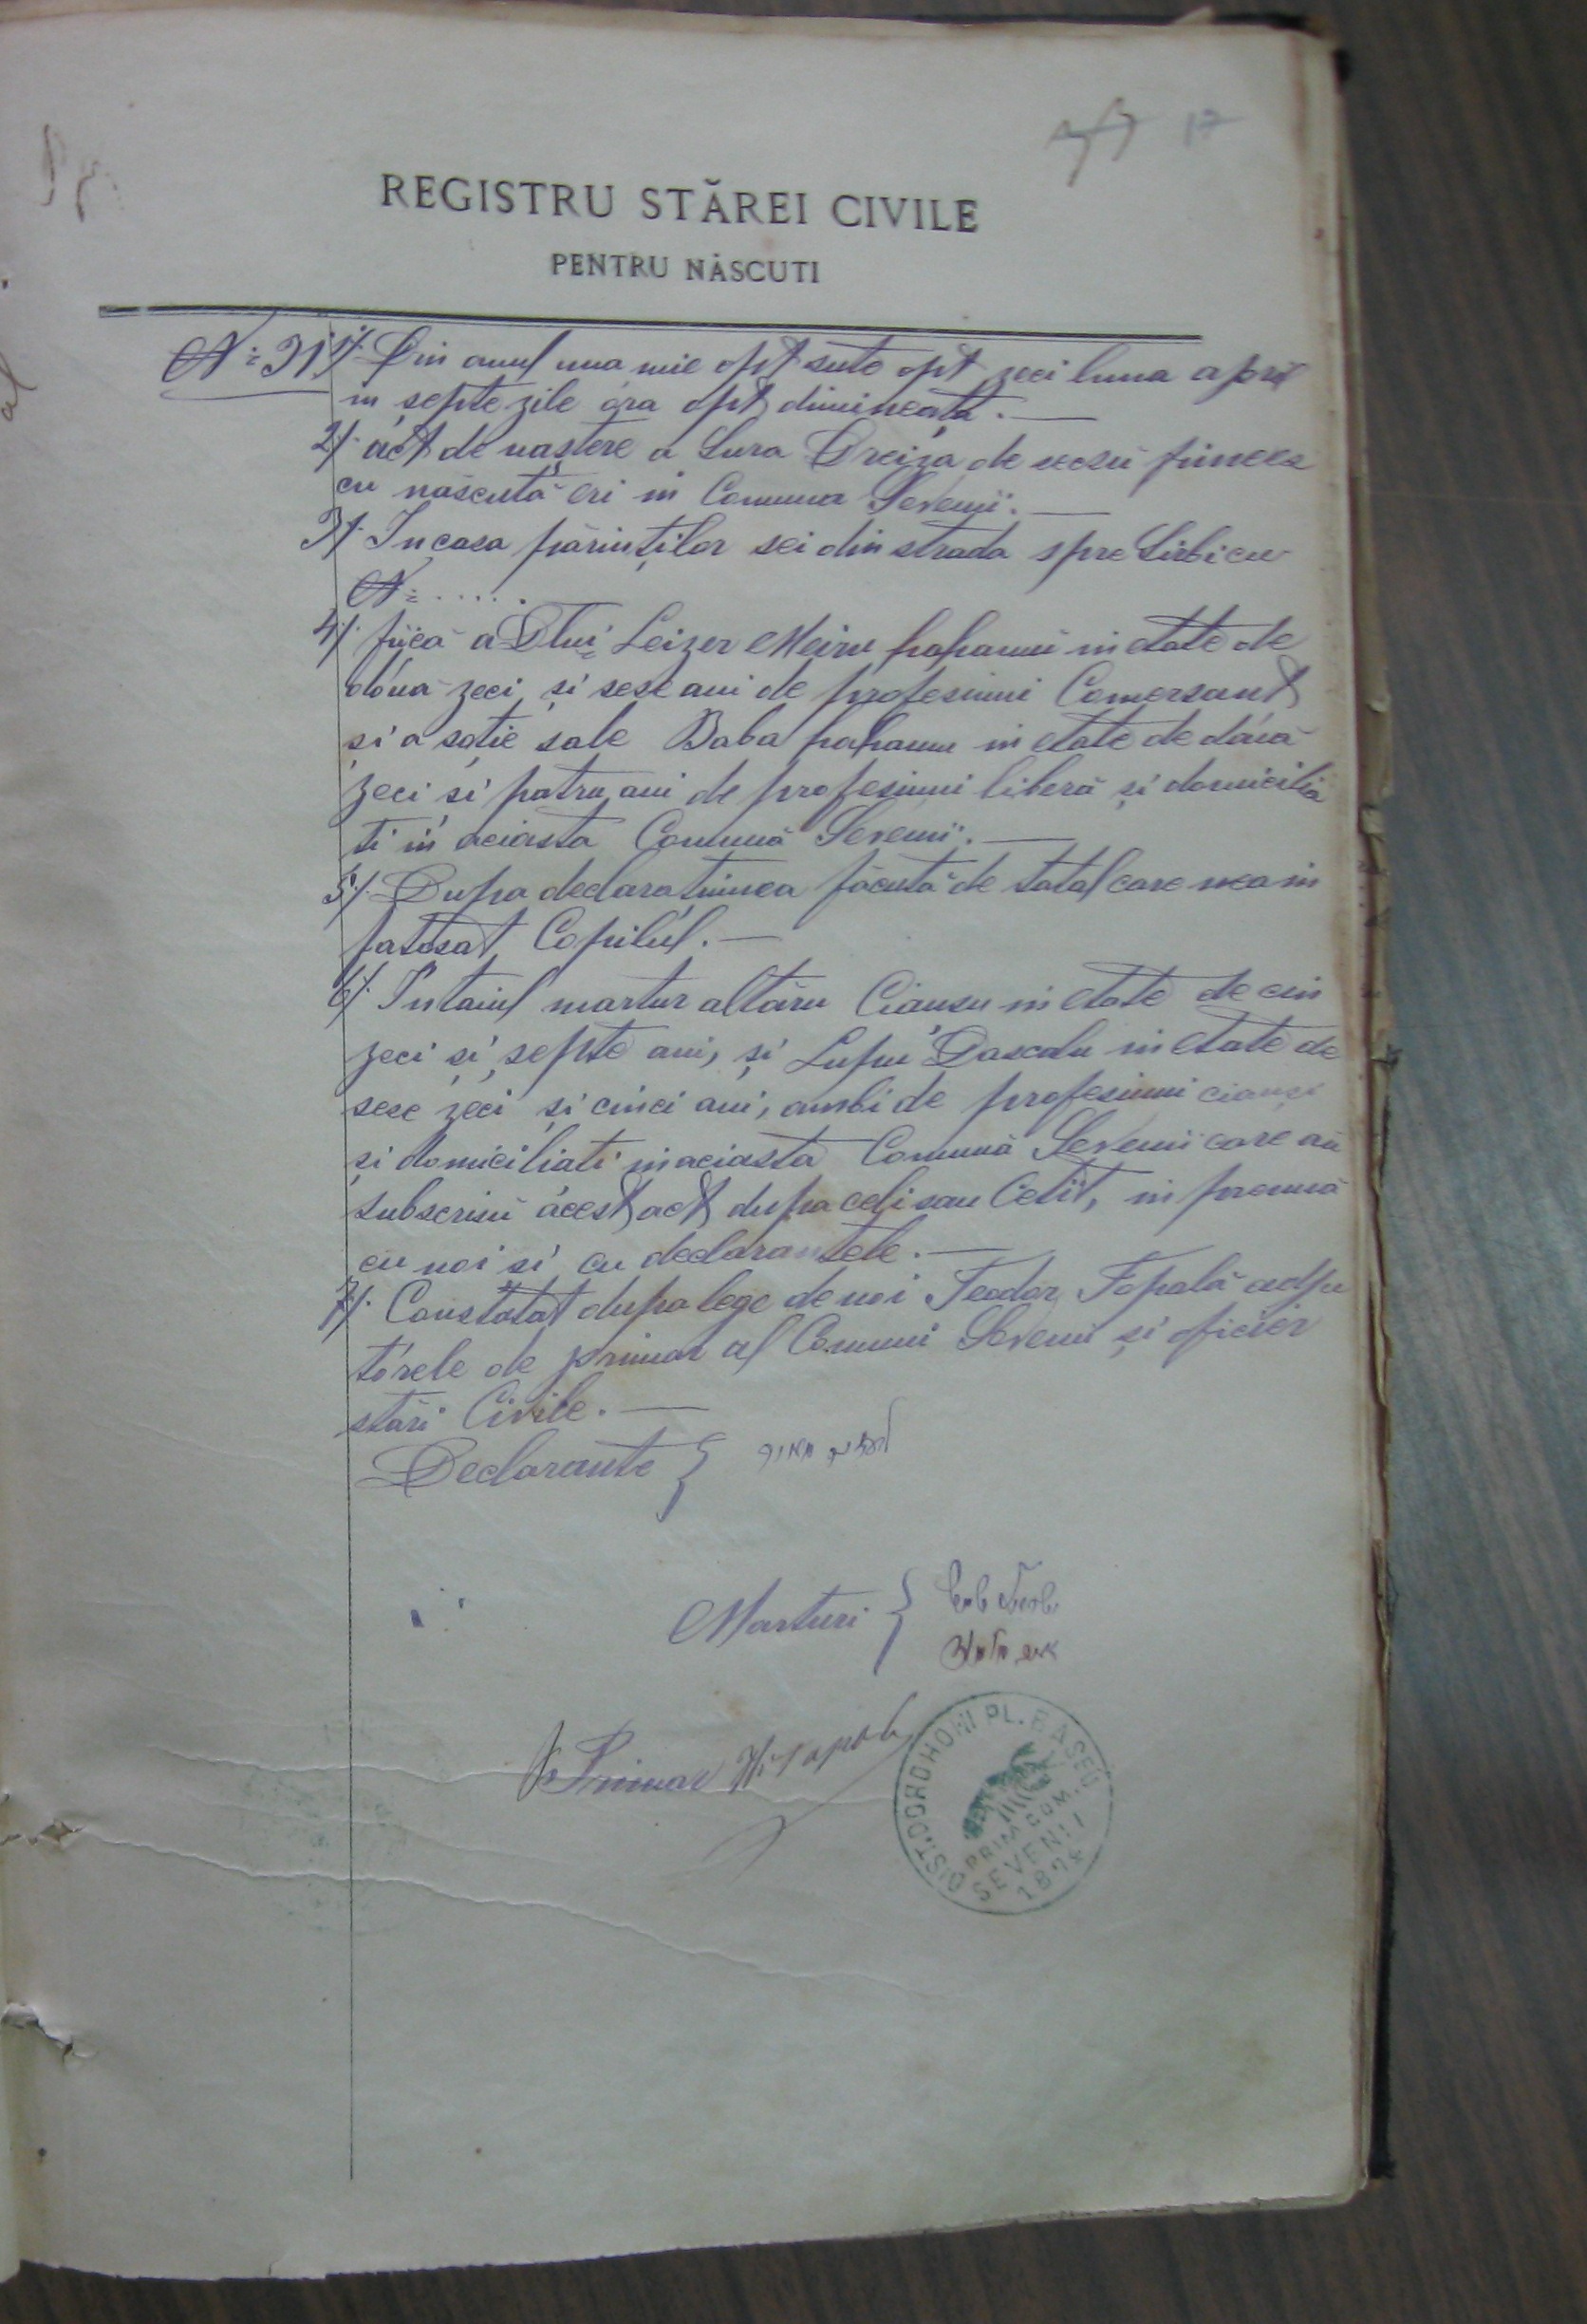 17
REGISTRU STĂREI CIVILE
PENTRU NĂSCUTI
No 31
1/. Din anul una mie opt sute opt zeci luna april
in șepte zile óra opt dimineața. —
2/. act de naștere a Sura Dreiza de secsu fimees
cu născută eri in Comuna Sevenii. —
3/. In casa părinților sei din strada spre Sirbi cu
No .....
4/. fiica a Dlui Leizer Meiru hahamu in etate de
dóua zeci și șese ani de profesiuni Comersant
și a soție sale Baba hahamu in etate de dóua
zeci și patru ani de profesiuni liberă și domicilia
ti in aciasta Comună Sevenii. —
5/. Dupa declaratiunea făcută de tatal care nea in
fatosat Copilul. —
6/. Intaiul martur altăru Ciausu in etate de cin
zeci și șepte ani, și Lupu Dascalu in etate de
șese zeci și cinci ani, ambi de profesiuni ciauși
și domiciliati in aciasta Comună Sevenii care au
subscrisu acest act dupa ce li sau Cetit, in preună
cu noi si cu declarantele. —
7/. Constatat dupa lege de noi Teodor Topală adju
torele de primar al Comuni Sevenii și oficier
stări Civile. —
Declarante }
Marturi }
p. Primar
DIST. DOROHOIU PL. BAȘEU
PRIM. COM.
SEVENII